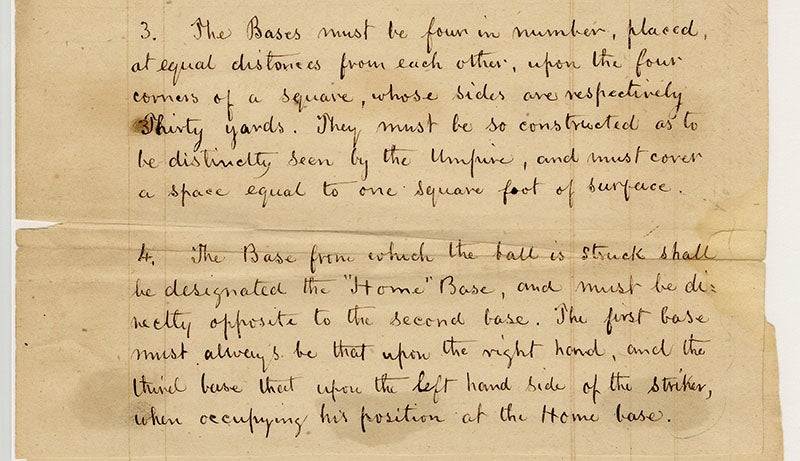 3. The Bases must be four in number, placed,
at equal distances from each other, upon the four
corners of a square, whose sides are respectively
Thirty yards. They must be so constructed as to
be distinctly seen by the Umpire, and must cover
a space equal to one square foot of surface.
4. The Base from which the ball is struck shall
be designated the "Home" Base, and must be di=
rectly opposite to the second base. The first base
must always be that upon the right hand, and the
third base that upon the left hand side of the striker,
when occupying his position at the Home base.